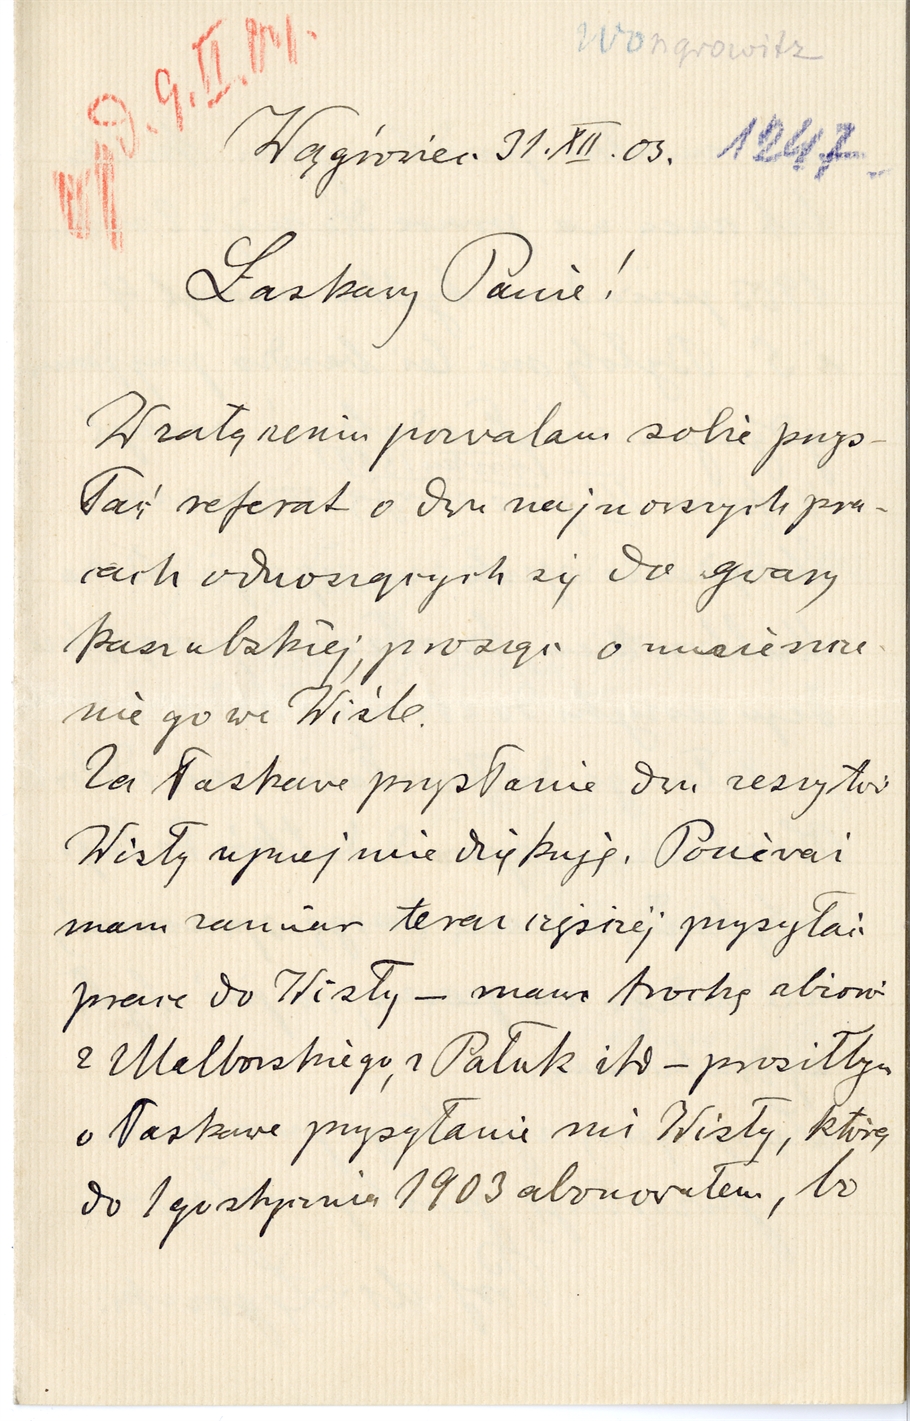 Wongrowitz
D. 9.II.04.
Wągrowiec 31.XII.03. 1247
Łaskawy Panie!
W załączeniu pozwalam sobie przys-
łać referat o dwu najnowszych pra-
cach odnoszących się do gwary
kaszubskiej, prosząc o umieszcze-
nie go we Wiśle.
Za łaskawe przysłanie dwu zeszytów
Wisły uprzejmie dziękuję. Ponieważ
mam zamiar teraz częściej przysyłać
prace do Wisły – mam trochę zbiorów
z Malborskiego, z Pałuk itd – prosiłbym
o łaskawe przysyłanie mi Wisły, którą
do 1go stycznia 1903 abonowałem, bo